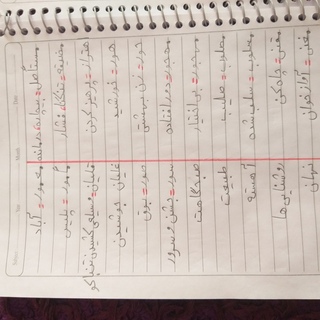 مستأصل = بیچاره، درمانده معمور = آباد
مضیقه = تنگنا، فشار مأمور = پلیس
احتراز = پرهیز کردن قلیان = وسیله‌ی کشیدن تنباکو
هور = خورشید غلیان جوشیدن
حور = زن بهشتی صور = بوق
مهجور = دور افتاده سور = جشن و سرور
محجور = بی اختیار صبحگاهت
مصلوب = صلیب طبیعت
مسلوب = سلب شده آهسته
مقنی = چاه کن روشنایی ها
مغنی = آوازخوان نهان